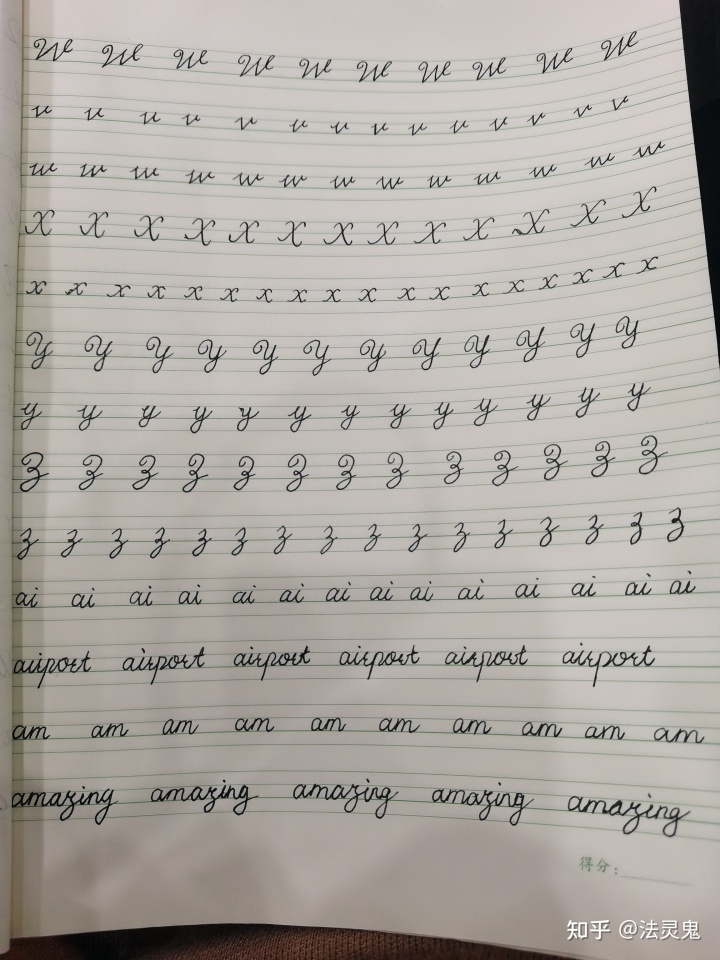 W W W W W W W W W W
v v v v v v v v v v v v v v
w w w w w w w w w w w w w
X X X X X X X X X X X X X
x x x x x x x x x x x x x x x x x x
Y Y Y Y Y Y Y Y Y Y Y Y
y y y y y y y y y y y y y
Z Z Z Z Z Z Z Z Z Z Z Z Z
z z z z z z z z z z z z z z z z
ai ai ai ai ai ai ai ai ai ai ai ai ai ai
airport airport airport airport airport airport
am am am am am am am am am am
amazing amazing amazing amazing amazing
得分:
知乎 @法灵鬼